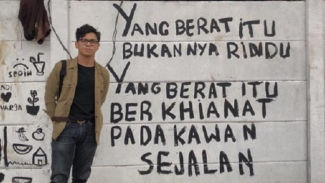 YANG BERAT ITU
BUKANNYA RINDU
YANG BERAT ITU
BER KHIANAT
PADA KAWAN
SEJALAN